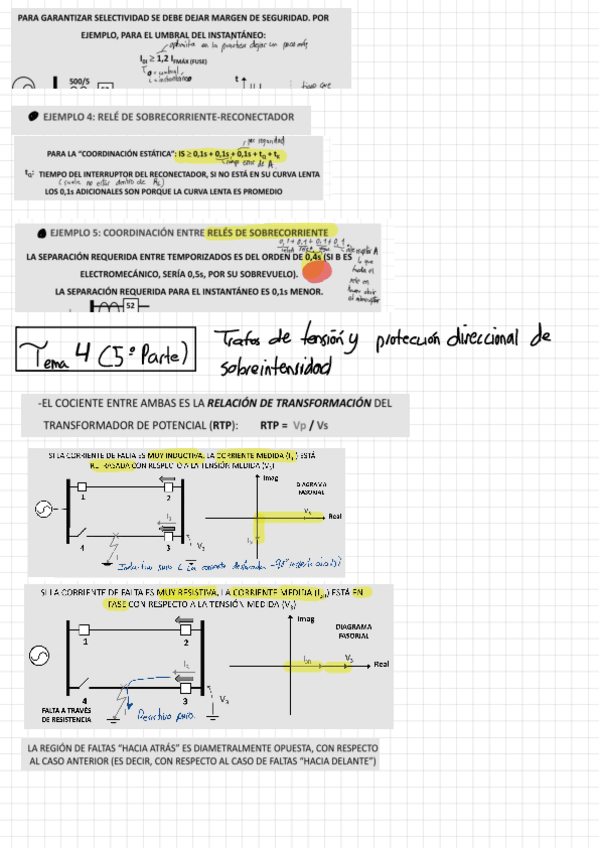 PARA GARANTIZAR SELECTIVIDAD SE DEBE DEJAR MARGEN DE SEGURIDAD. POR
EJEMPLO, PARA EL UMBRAL DEL INSTANTÁNEO:
optimista en la practica dejar un poco más
I ≥ 1,2 I FMÁX (FUSE)
umbral,
instantáneo
500/5
t
tipo que
EJEMPLO 4: RELÉ DE SOBRECORRIENTE-RECONECTADOR
por seguridad
PARA LA "COORDINACIÓN ESTÁTICA": IS ≥ 0,1s + 0,1s + 0,1s + tQ + tR
de A
tQ: TIEMPO DEL INTERRUPTOR DEL RECONECTADOR, SI NO ESTÁ EN SU CURVA LENTA
LOS 0,1s ADICIONALES SON PORQUE LA CURVA LENTA ES PROMEDIO
EJEMPLO 5: COORDINACIÓN ENTRE RELÉS DE SOBRECORRIENTE
0,1+0,1+0,1+0,1
LA SEPARACIÓN REQUERIDA ENTRE TEMPORIZADOS ES DEL ORDEN DE 0,4s (SI B ES
ELECTROMECÁNICO, SERÍA 0,5s, POR SU SOBREVUELO).
LA SEPARACIÓN REQUERIDA PARA EL INSTANTÁNEO ES 0,1s MENOR.
52
Tema 4 (5ª Parte)
Trafos de tensión y protección direccional de
sobreintensidad
-EL COCIENTE ENTRE AMBAS ES LA RELACIÓN DE TRANSFORMACIÓN DEL
TRANSFORMADOR DE POTENCIAL (RTP): RTP = Vp / Vs
SI LA CORRIENTE DE FALTA ES MUY INDUCTIVA, LA CORRIENTE MEDIDA (I) ESTÁ
RETRASADA CON RESPECTO A LA TENSIÓN MEDIDA (V3)
Imag
DIAGRAMA
FASORIAL
1
2
Real
4
3
V3
Inductivo puro
SI LA CORRIENTE DE FALTA ES MUY RESISTIVA, LA CORRIENTE MEDIDA (I) ESTÁ EN
FASE CON RESPECTO A LA TENSIÓN MEDIDA (V3)
Imag
DIAGRAMA
FASORIAL
1
2
V3
Real
4
3
V3
FALTA A TRAVÉS
DE RESISTENCIA
Resistivo puro.
LA REGIÓN DE FALTAS "HACIA ATRÁS" ES DIAMETRALMENTE OPUESTA, CON RESPECTO
AL CASO ANTERIOR (ES DECIR, CON RESPECTO AL CASO DE FALTAS "HACIA DELANTE")